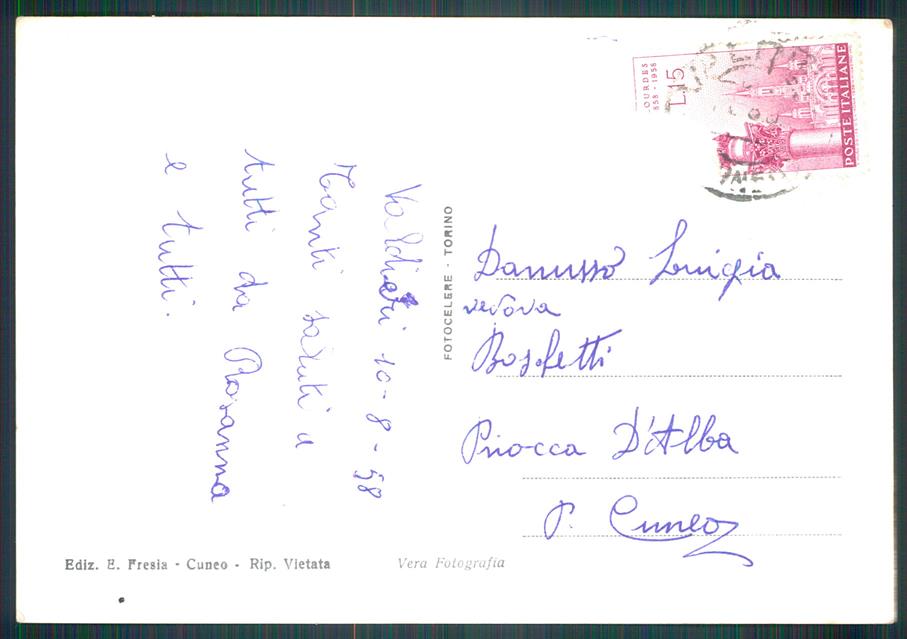 Valdieri 10-8-58
Tanti saluti a
tutti da Rosanna
e tutti.
FOTOCELERE - TORINO
OURDES
858 - 1958
L.15
POSTE ITALIANE
Danusso Luigia
vedova
Boffetti
Priocca D'Alba
P. Cuneo
Ediz. E. Fresia - Cuneo - Rip. Vietata
Vera Fotografia